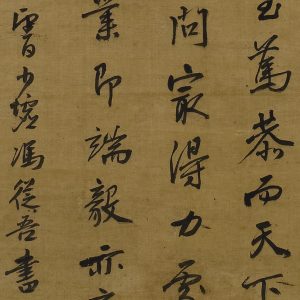 至篤恭而天下
問最得力處
業即端毅亦
少墟馮從吾書